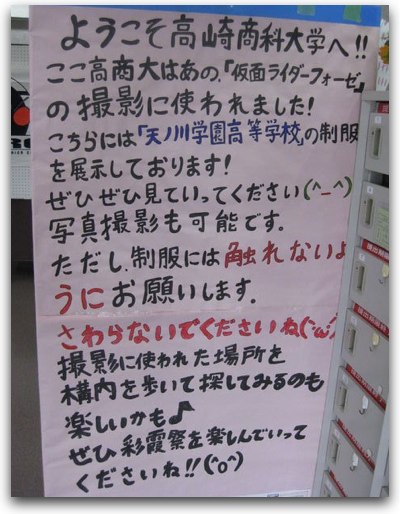 ようこそ高崎商科大学へ!!
ここ高商大はあの、「仮面ライダーフォーゼ」
の撮影に使われました!
こちらには「天ノ川学園高等学校」の制服
を展示しております!
ぜひぜひ見ていってください(^-^)
写真撮影も可能です。
ただし、制服には触れないよ
うにお願いします。
さわらないでくださいね(´ω`)
撮影に使われた場所を
構内を歩いて探してみるのも
楽しいかも♪
ぜひ彩霞祭を楽しんでいって
くださいね!!(^o^)